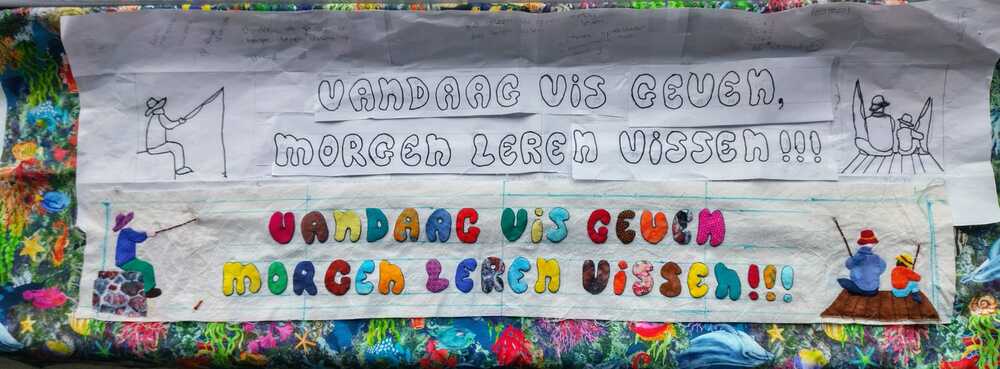 VANDAAG VIS GEVEN,
MORGEN LEREN VISSEN!!!
VANDAAG VIS GEVEN
MORGEN LEREN VISSEN!!!